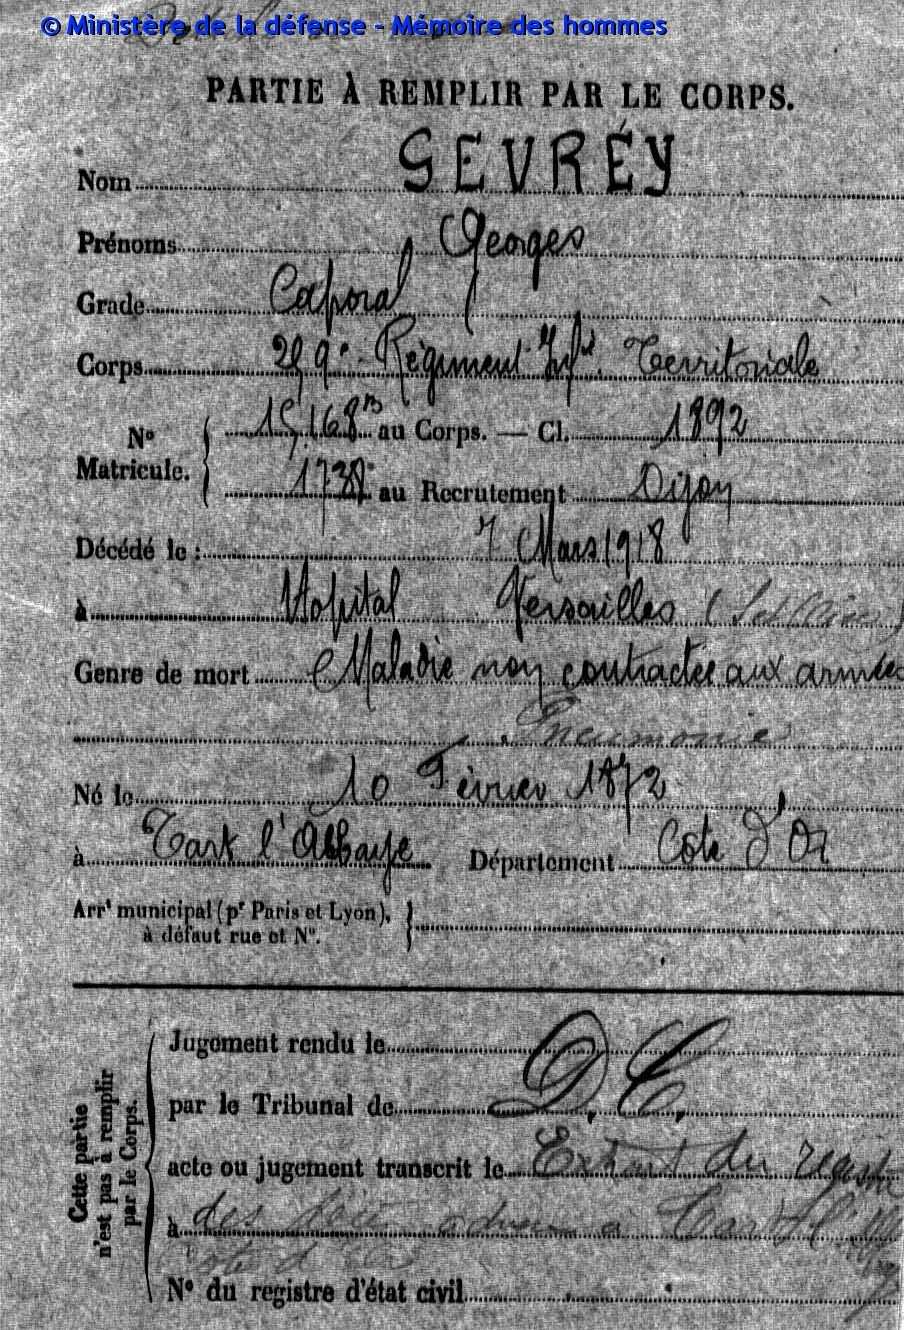 © Ministère de la défense - Mémoire des hommes
PARTIE À REMPLIR PAR LE CORPS.
Nom GEVRÉY
Prénoms Georges
Grade Caporal
Corps Régiment Inf. Territoriale
No Matricule. 15,168 au Corps. — Cl. 1892
173 au Recrutement Dijon
Décédé le : 7 Mars 1918
à Hopital Versailles
Genre de mort Maladie non contractée aux armées
Pneumonie
Né le 10 Février 1872
à Tart l'Abbaye Département Cote d'Or
Arrt municipal (pr Paris et Lyon),
à défaut rue et No.
Cette partie
n'est pas à remplir
par le Corps.
Jugement rendu le D.C.
par le Tribunal de
acte ou jugement transcrit le Extrait du
à des a Tart l'
No du registre d'état civil